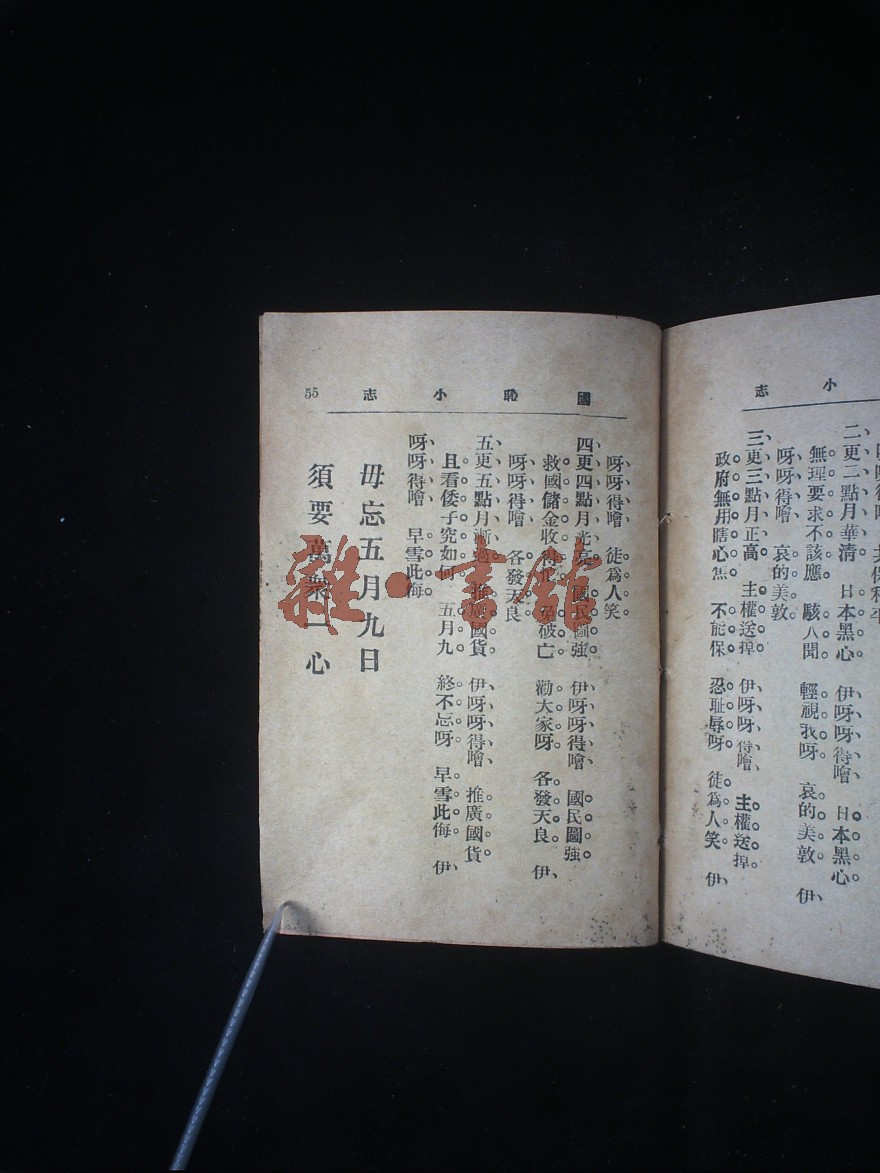 志 小
二更二點月華清 日本黑心 伊呀呀得噲 日本黑心
無理要求不該應 駭人聞 輕視我呀 哀的美敦 伊
呀呀得噲 哀的美敦
三更三點月正高 主權送掉 伊呀呀得噲 主權送掉
政府無用瞎心焦 不能保 忍耻辱呀 徒爲人笑 伊
國恥小志 55
呀呀得噲 徒爲人笑
四更四點月光 國民圖強 伊呀呀得噲 國民圖強
救國儲金收得 破亡 勸大家呀 各發天良 伊
呀呀得噲 各發天良
五更五點月漸過 推廣國貨 伊呀呀得噲 推廣國貨
且看倭子究如何 五月九 終不忘呀 早雪此侮 伊
呀呀得噲 早雪此侮
毋忘五月九日
須要萬衆一心
雜·書館